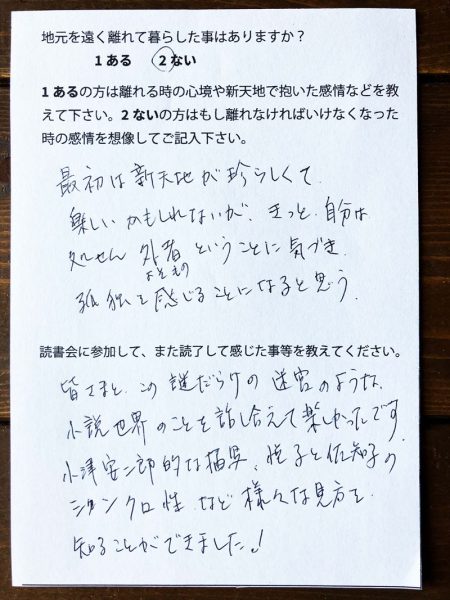 地元を遠く離れて暮らした事はありますか？
1 ある　2 ない
1 あるの方は離れる時の心境や新天地で抱いた感情などを教
えて下さい。2 ないの方はもし離れなければいけなくなった
時の感情を想像してご記入下さい。
最初は新天地が珍らしくて
楽しいかもしれないが、きっと自分は
処せん外者ということに気づき
よそもの
孤独を感じることになると思う。
読書会に参加して、また読了して感じた事等を教えてください。
皆さまと、この謎だらけの迷宮のような、
小説世界のことを話し合えて楽しかったです。
小津安二郎的な描写、悦子と佐知子の
シンクロ性など様々な見方を
知ることができました！